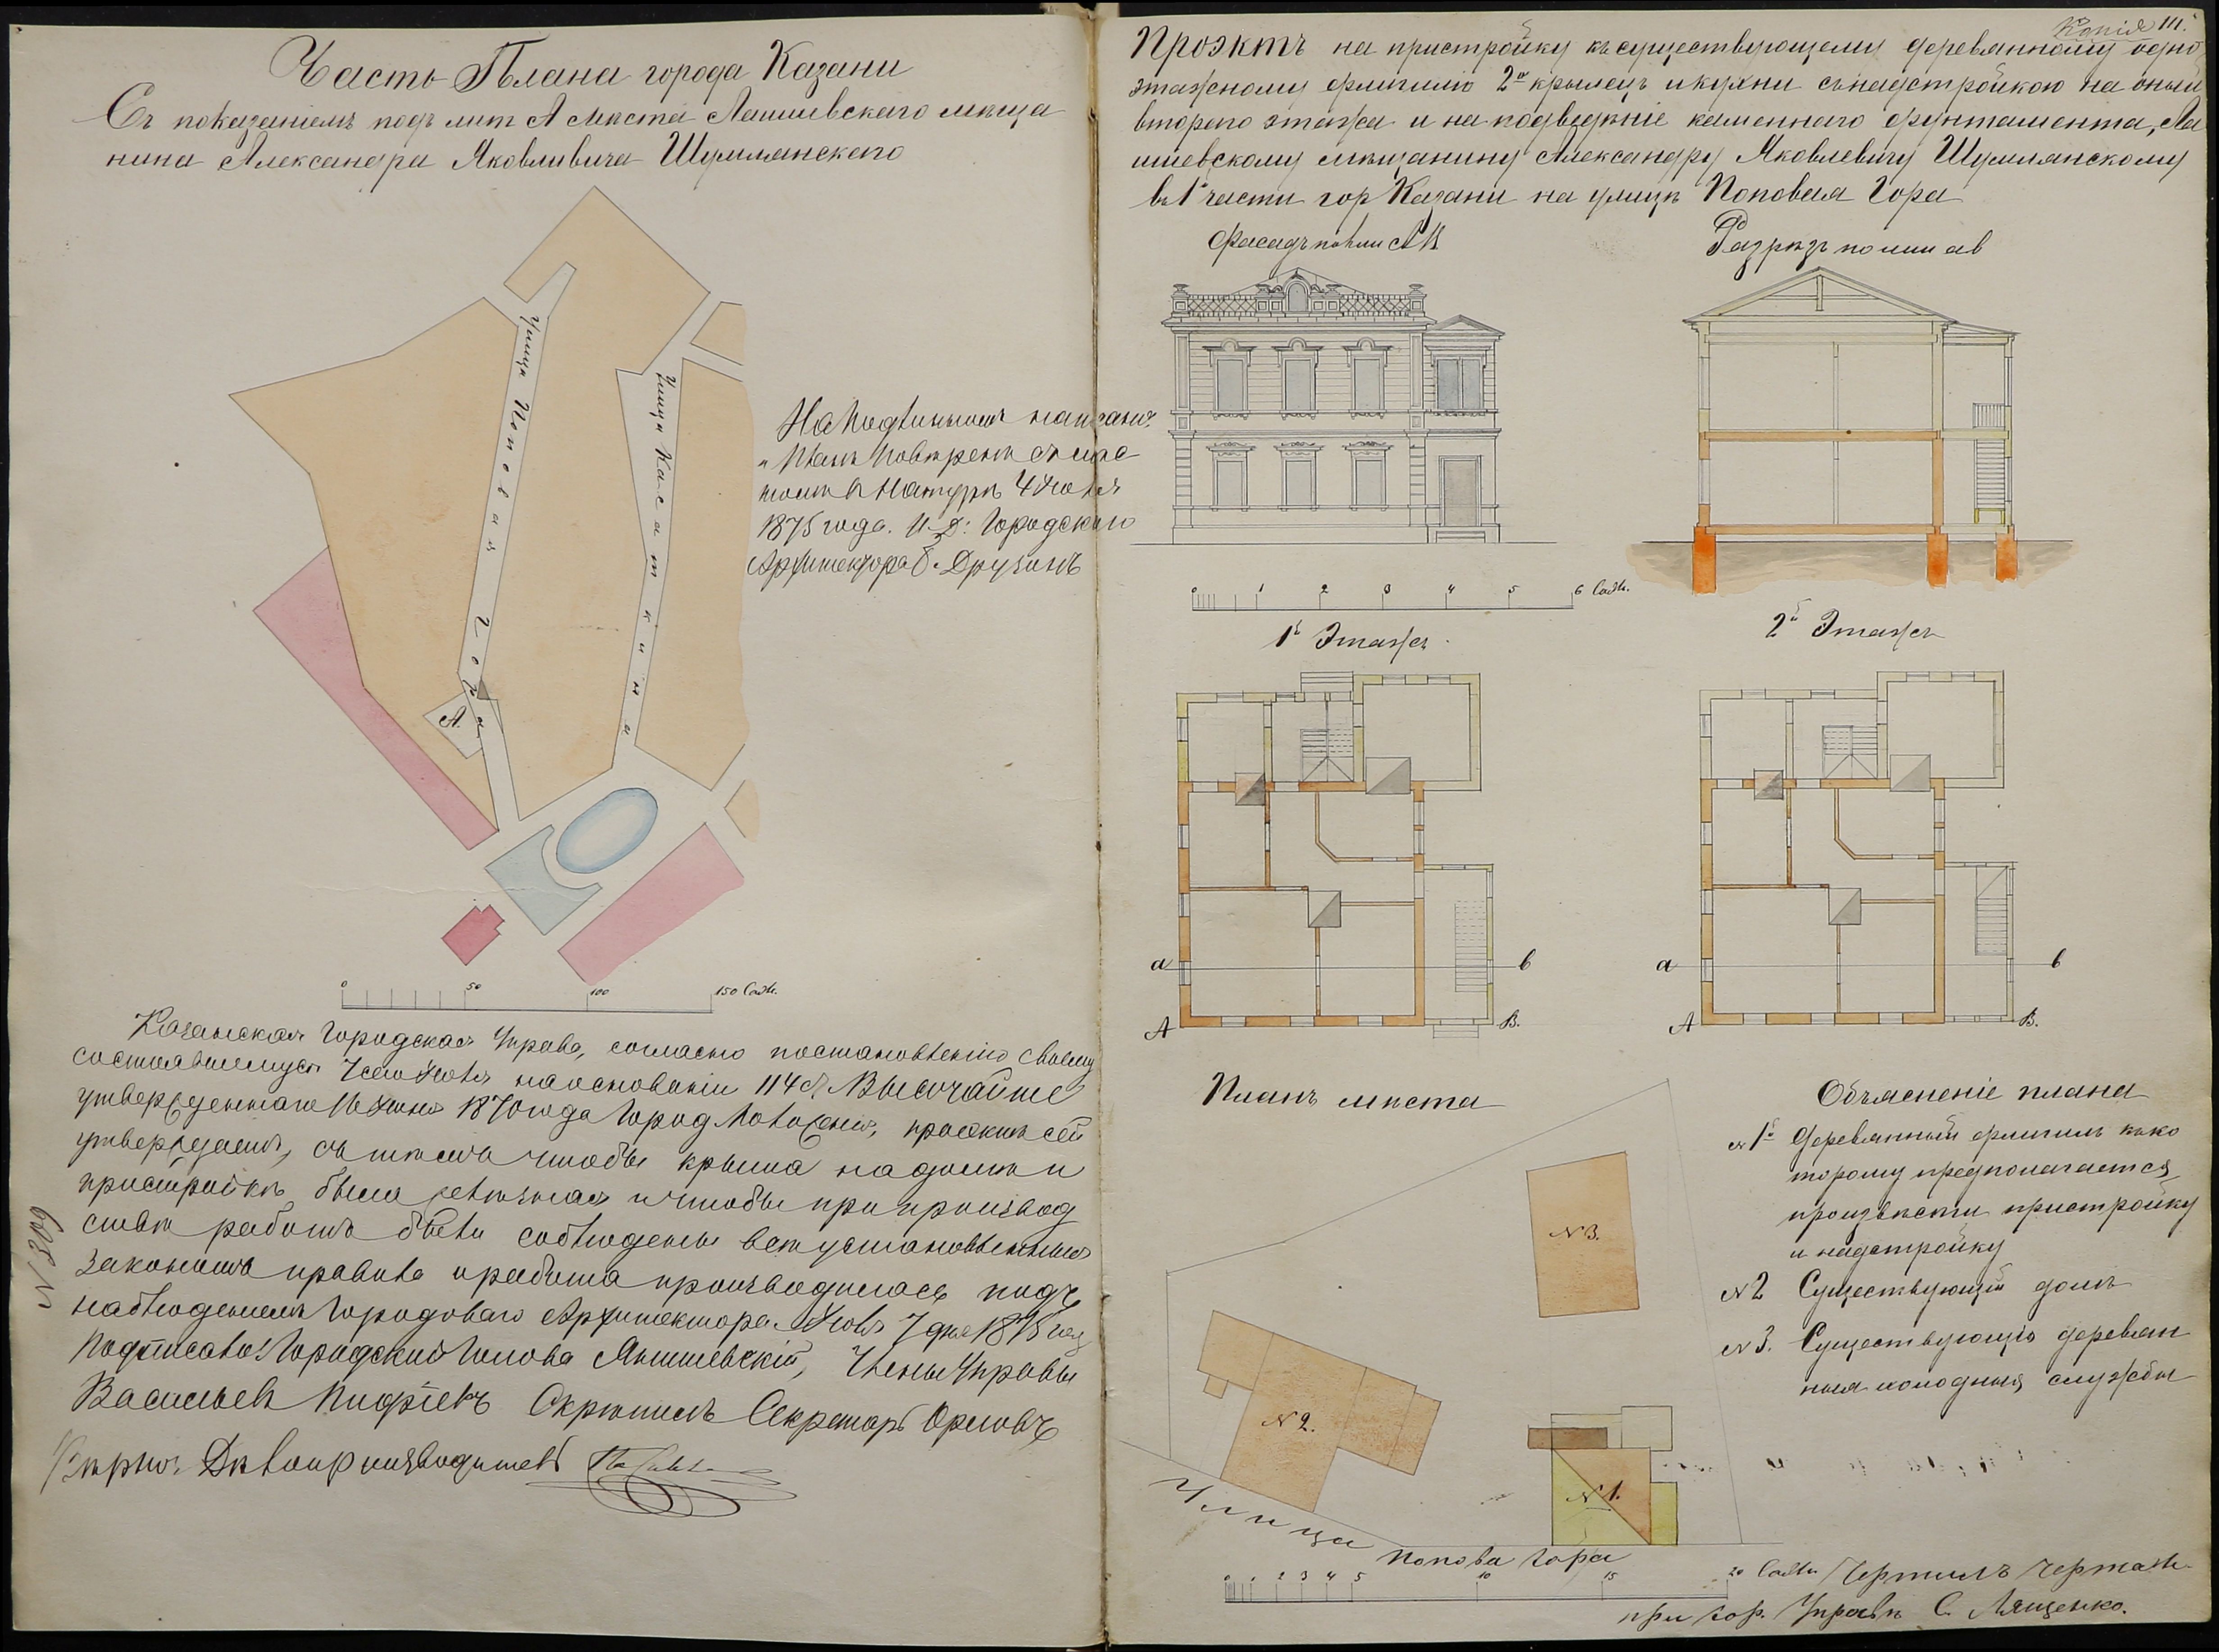 Часть Плана города Казани
Съ показаніемъ подъ лит А мѣста Лаишевскаго мѣща
нина Александра Яковлевича Шумлянскаго
Улица Поповая Гора
Улица Касаткина
А.
На подлинномъ написано:
"Планъ повѣренъ съ мѣс
томъ въ натурѣ 4 Июля
1875 года. И. Д: Городскаго
Архитектора Б. Друзинъ
0 50 100 150 Саж.
Казанская Городская Управа, согласно постановленію своему
состоявшемуся 7 сего Июля на основаніи 114 ст Высочайше
утвержденнаго 16 Июня 1870 года Город Положенія, проэктъ сей
утверждаетъ, съ тѣмъ чтобы крыша на домѣ и
пристройкѣ была желѣзная и чтобы при производ
ствѣ работъ были соблюдены всѣ установленныя
закономъ правила и работа производилась подъ
наблюденіемъ Городоваго Архитектора. Июля 7 дня 1875 год
Подписали: Городской Голова Янишевскій, Члены Управы
Васильевъ Скрѣпилъ Секретарь Орловъ
Вѣрно: Дѣлопроизводитель
N 309
Копія III.
Проэктъ на пристройку къ существующему деревянному одно
этажному флигилю 2х крылецъ и кухни съ надстройкою на оный
второго этажа и на подведѣніе каменнаго фунтамента, Ла
ишевскому мѣщанину Александру Яковлевичу Шумлянскому
въ 1й части гор Казани на улицѣ Поповая Гора
Фасадъ по лин АВ
Разрѣзъ по лин ав
0 1 2 3 4 5 6 Саж.
1й Этажъ.
2й Этажъ
а в
А В.
а в
А В.
Планъ мѣста
Объясненіе плана
N 1й Деревянный флигиль къ ко
торому предполагается
произвѣсти пристройку
и надстройку
N 2 Существующій домъ
N 3. Существующія деревян
ныя холодныя службы
N 3.
N 2.
N 1.
Улица Попова Гора
0 1 2 3 4 5 10 15 20 Саж.
Чертилъ Чертеж.
при Гор. Управѣ С. Лященко.